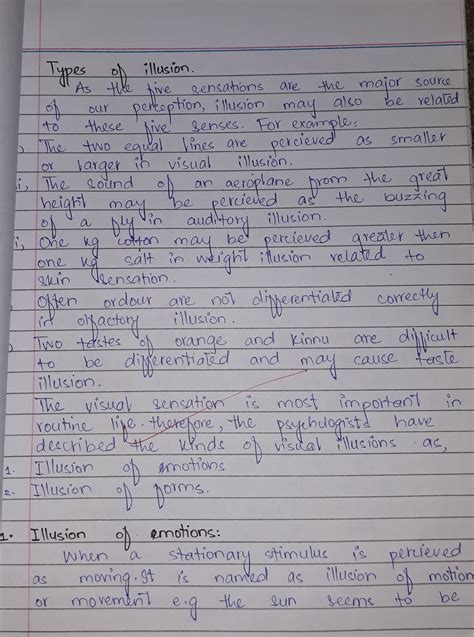 Types of illusion.
As the five sensations are the major source
of our perception, illusion may also be related
to these five senses. For example:
i, The two equal lines are percieved as smaller
or larger in visual illusion.
i, The sound of an aeroplane from the great
height may be percieved as the buzzing
of a fly in auditory illusion.
i, One kg cotton may be percieved greater then
one kg salt in weight illusion related to
skin sensation.
Often ordour are not differentiated correctly
in olfactory illusion.
Two tastes of orange and kinnu are difficult
to be differentiated and may cause taste
illusion.
The visual sensation is most important in
routine life. therefore, the psychologists have
described the kinds of visual illusions as,
1. Illusion of emotions
2. Illusion of forms.
1. Illusion of emotions:
When a stationary stimulus is percieved
as moving. It is named as illusion of motion
or movement e.g the sun seems to be